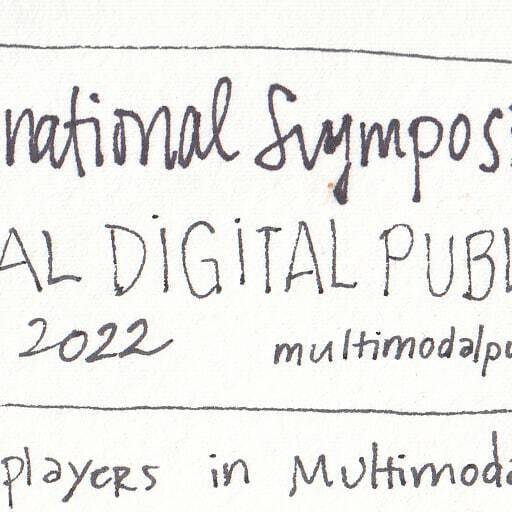 national Symposi
AL DIGITAL PUBL
2022 multimodalpu
players in Multimoda